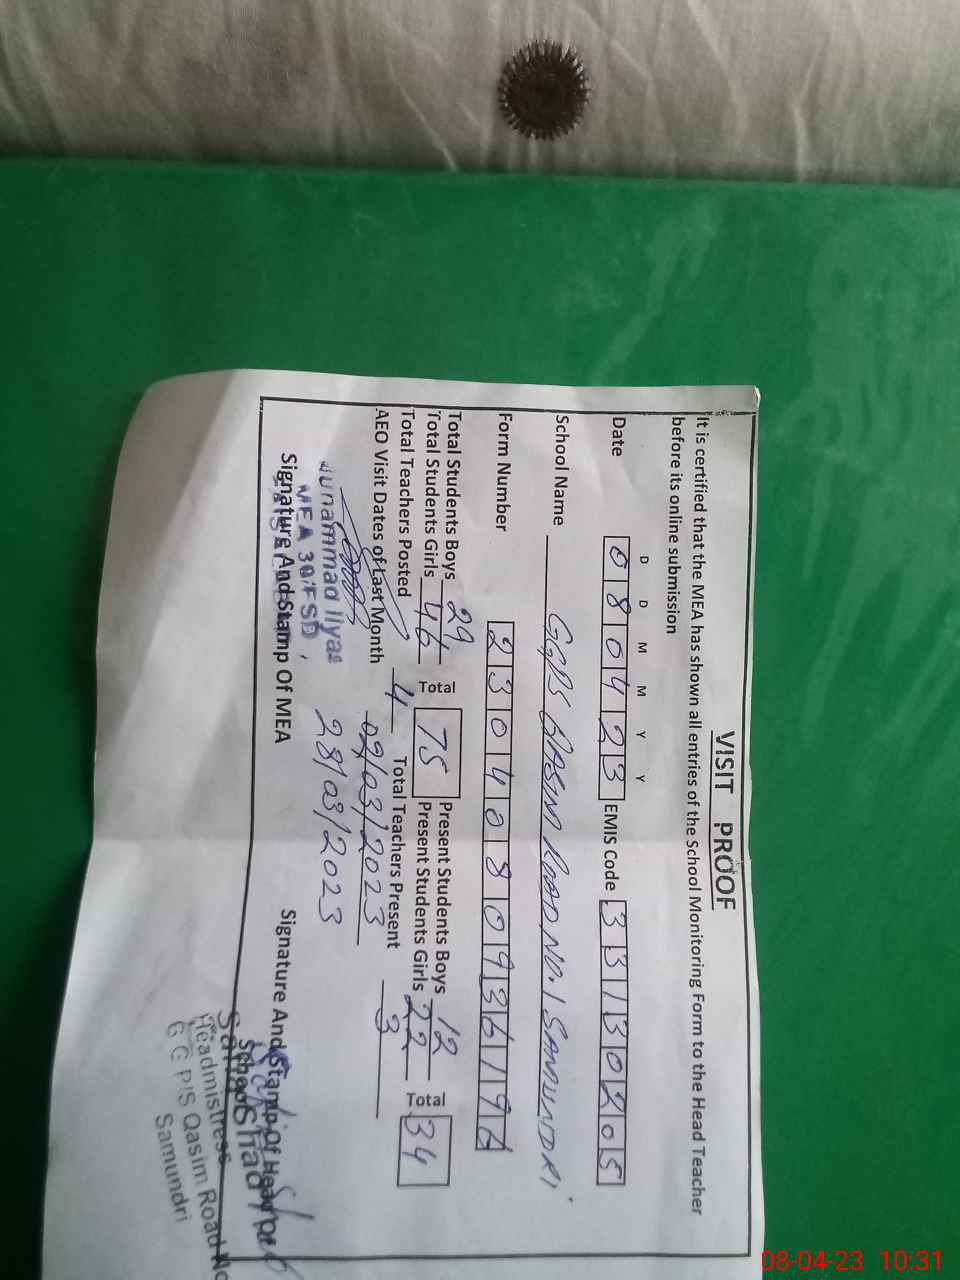 VISIT PROOF
It is certified that the MEA has shown all entries of the School Monitoring Form to the Head Teacher
before its online submission
D D M M Y Y
Date 080423 EMIS Code 33130205
School Name GGPS QASIM ROAD NO.1 SAMUNDRI
Form Number 2304080936192
Total Students Boys 29 Total 75 Present Students Boys 12 Total 34
Total Students Girls 46 Present Students Girls 22
Total Teachers Posted 4 Total Teachers Present 3
AEO Visit Dates of Last Month 02/03/2023
28/03/2023
Muhammad Ilyas
MEA 30/FSD
Signature And Stamp Of MEA Signature And Stamp Of Head
School
Headmistress
G G P/S Qasim Road No
Samundri
08-04-23 10:31